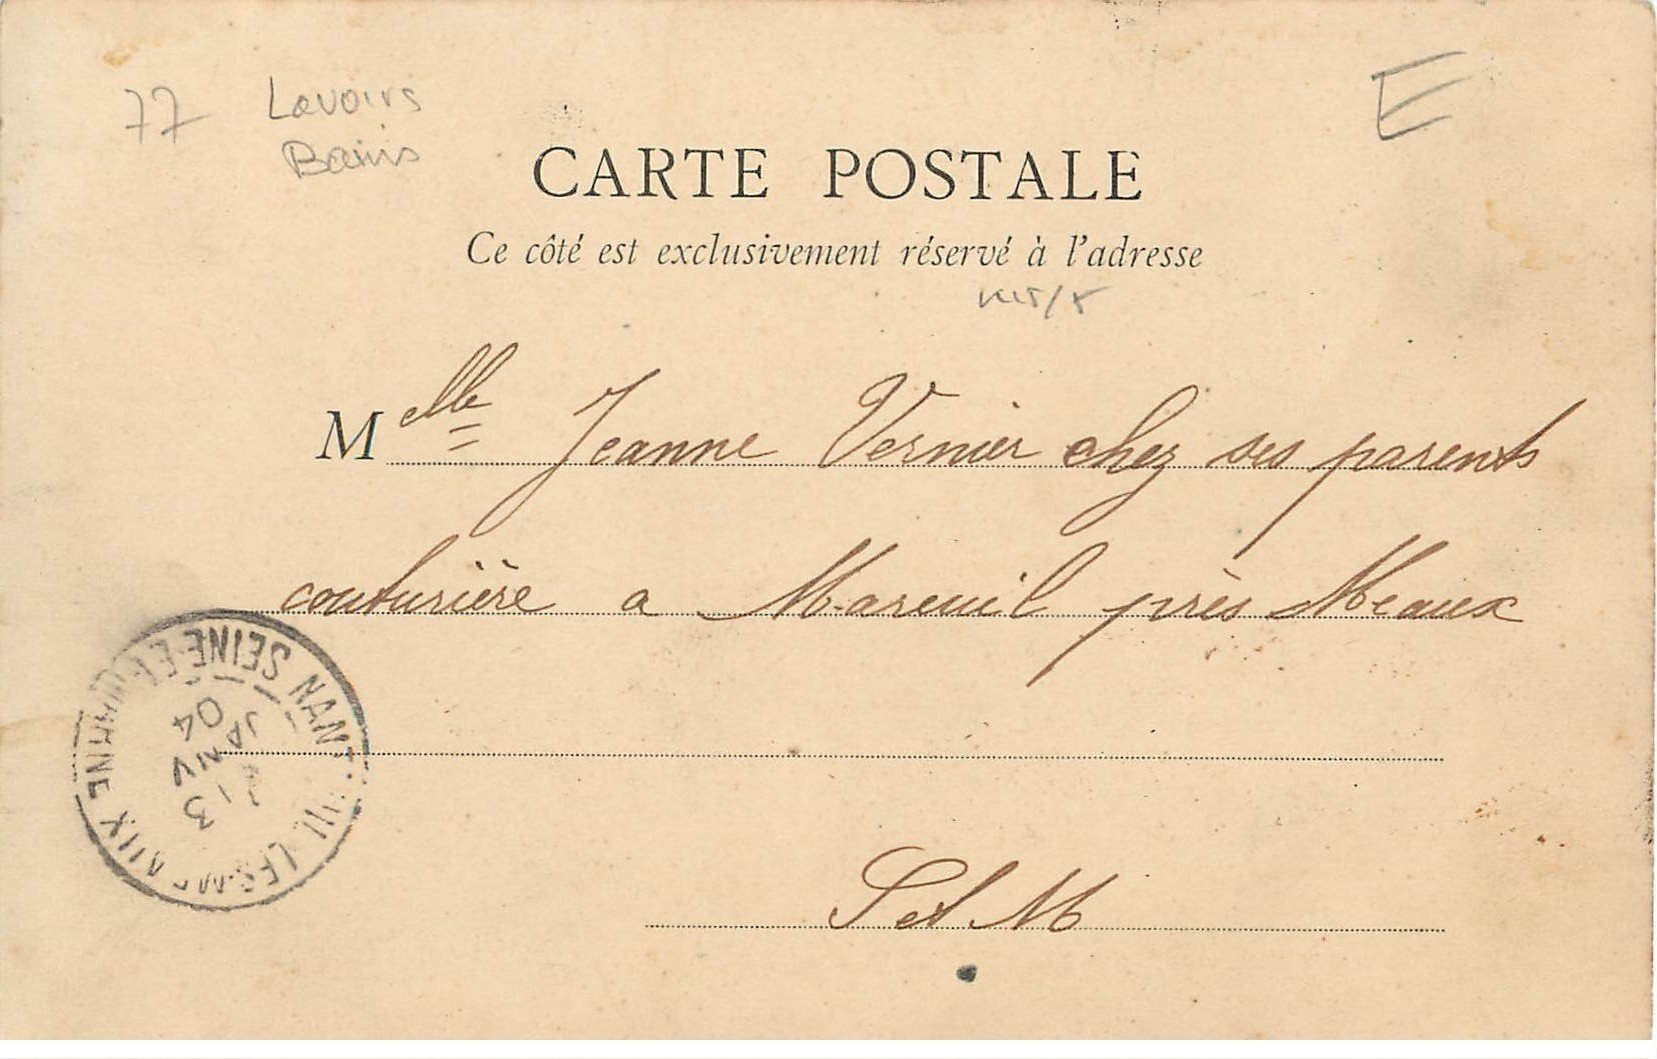 77 Lavoirs
Bains
E
CARTE POSTALE
Ce côté est exclusivement réservé à l'adresse
Melle Jeanne Vernier chez ses parents
couturière a Mareuil près Meaux
S et M
NANT LES-M AUX SEINE-ET-MARNE
3
JANV
04